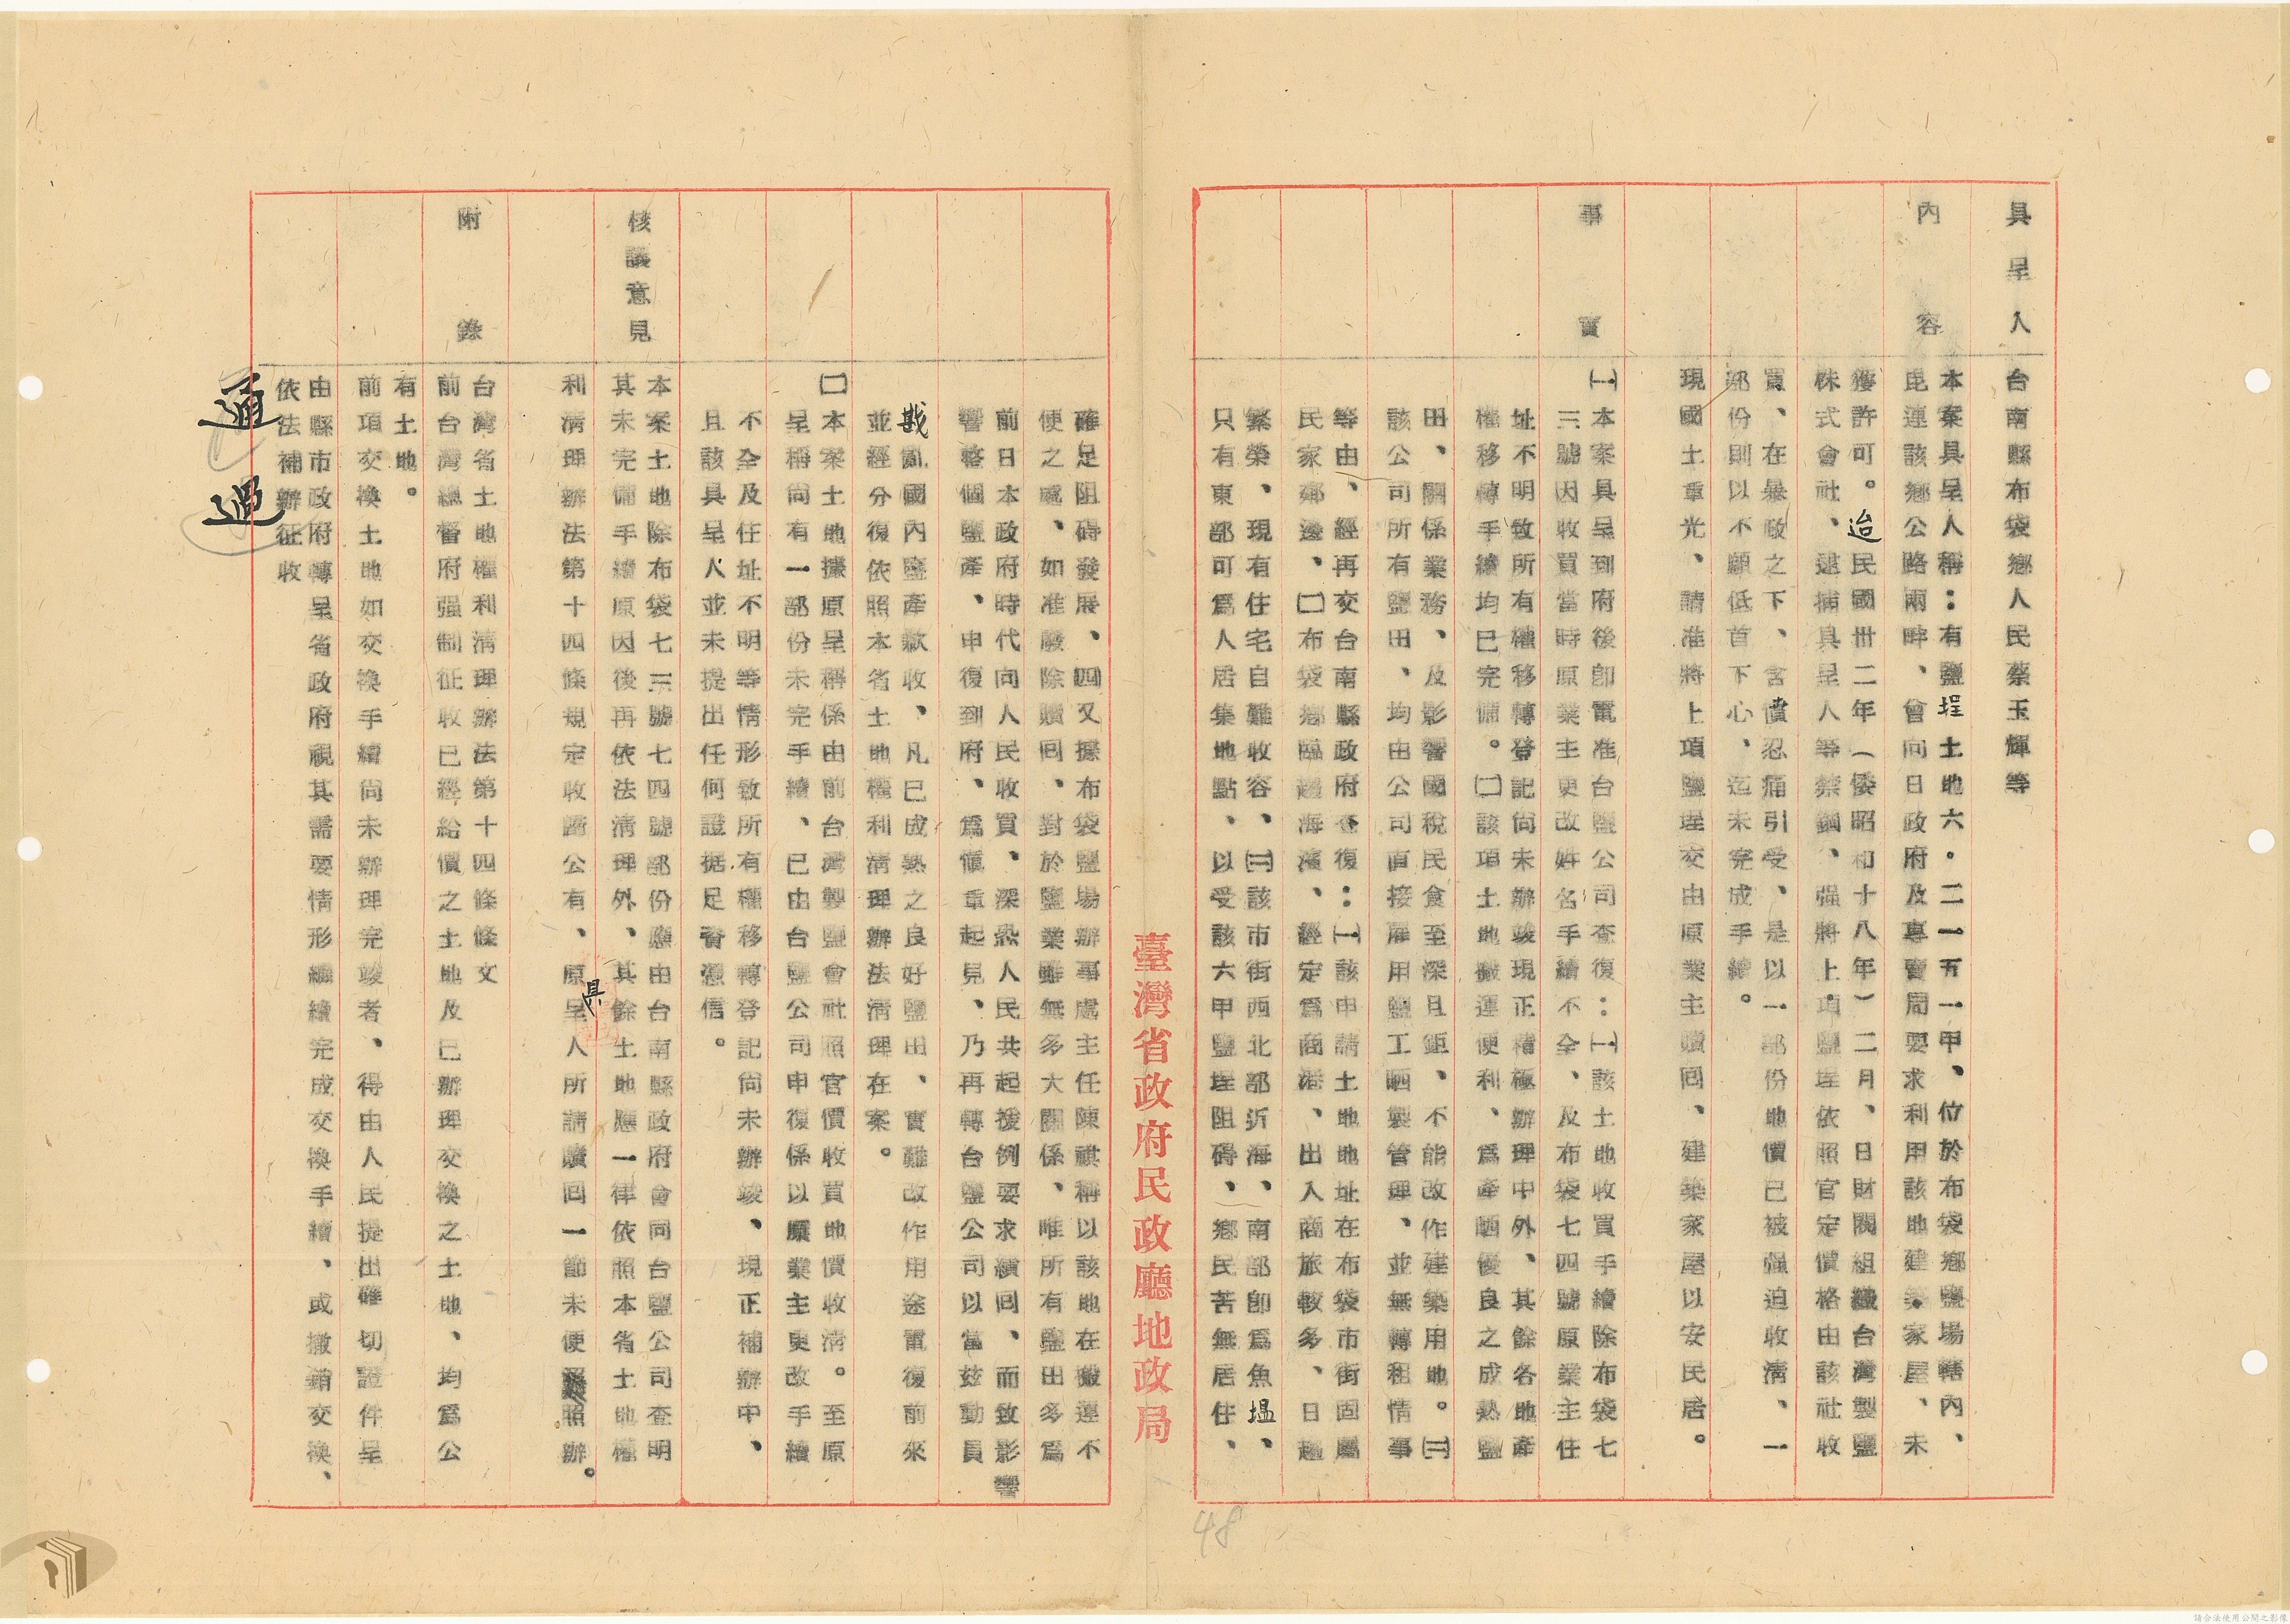 具呈人
台南縣布袋鄉人民蔡玉輝等
內容
本案具呈人稱：有鹽埕土地六．二一五一甲、位於布袋鄉鹽場轄內、
毘連該鄉公路兩畔、曾向日政府及專賣局要求利用該地建築家屋、未
獲許可。迨民國卅二年（倭昭和十八年）二月、日財閥組織台灣製鹽
株式會社、逮捕具呈人等禁錮、强將上項鹽埕依照官定價格由該社收
買、在暴政之下、含憤忍痛引受、是以一部份地價已被强迫收清、一
部份則以不願低首下心、迄未完成手續。
現國土重光、請准將上項鹽埕交由原業主贖回、建築家屋以安民居。
事實
㈠本案具呈到府後卽電准台鹽公司查復：㈠該土地收買手續除布袋七
三號因收買當時原業主更改姓名手續不全、及布袋七四號原業主住
址不明致所有權移轉登記尙未辦竣現正積極辦理中外、其餘各地產
權移轉手續均已完備。㈡該項土地搬運便利、爲產晒優良之成熟鹽
田、關係業務、及影響國稅民食至深且鉅、不能改作建築用地。㈢
該公司所有鹽田、均由公司直接雇用鹽工晒製管理、並無轉租情事
等由、經再交台南縣政府查復：㈠該申請土地地址在布袋市街固屬
民家鄰邊、㈡布袋鄉臨趨海濱、經定爲商港、出入商旅較多、日趨
繁榮、現有住宅自難收容、㈢該市街西北部近海、南部卽爲魚塭、
只有東部可爲人居集地點、以受該六甲鹽埕阻碍、鄉民苦無居住、
臺灣省政府民政廳地政局
確足阻碍發展、四又據布袋鹽場辦事處主任陳祺稱以該地在搬運不
便之處、如准廢除贖回、對於鹽業雖無多大關係、唯所有鹽田多爲
前日本政府時代向人民收買、深恐人民共起援例要求續回、而致影響
響整個鹽產、申復到府、爲愼重起見、乃再轉台鹽公司以當玆動員
戡亂國內鹽產歉收、凡已成熟之良好鹽田、實難改作用途電復前來
並經分復依照本省土地權利清理辦法清理在案。
㈡本案土地據原呈稱係由前台灣製鹽會社照官價收買地價收清。至原
呈稱尙有一部份未完手續、已由台鹽公司申復係以原業主更改手續
不全及住址不明等情形致所有權移轉登記尙未辦竣、現正補辦中、
且該具呈人並未提出任何證据足資憑信。
核議意見
本案土地除布袋七三號七四號部份應由台南縣政府會同台鹽公司查明
其未完備手續原因後再依法清理外、其餘土地應一律依照本省土地權
利清理辦法第十四條規定收歸公有、原具呈人所請贖回一節未便照辦。
附錄
台灣省土地權利清理辦法第十四條條文
前台灣總督府强制征收已經給價之土地及已辦理交換之土地、均爲公
有土地。
前項交換土地如交換手續尙未辦理完竣者、得由人民提出確切證件呈
由縣市政府轉呈省政府視其需要情形繼續完成交換手續、或撤銷交換、
依法補辦征收
通過
48
請合法使用公開之影像